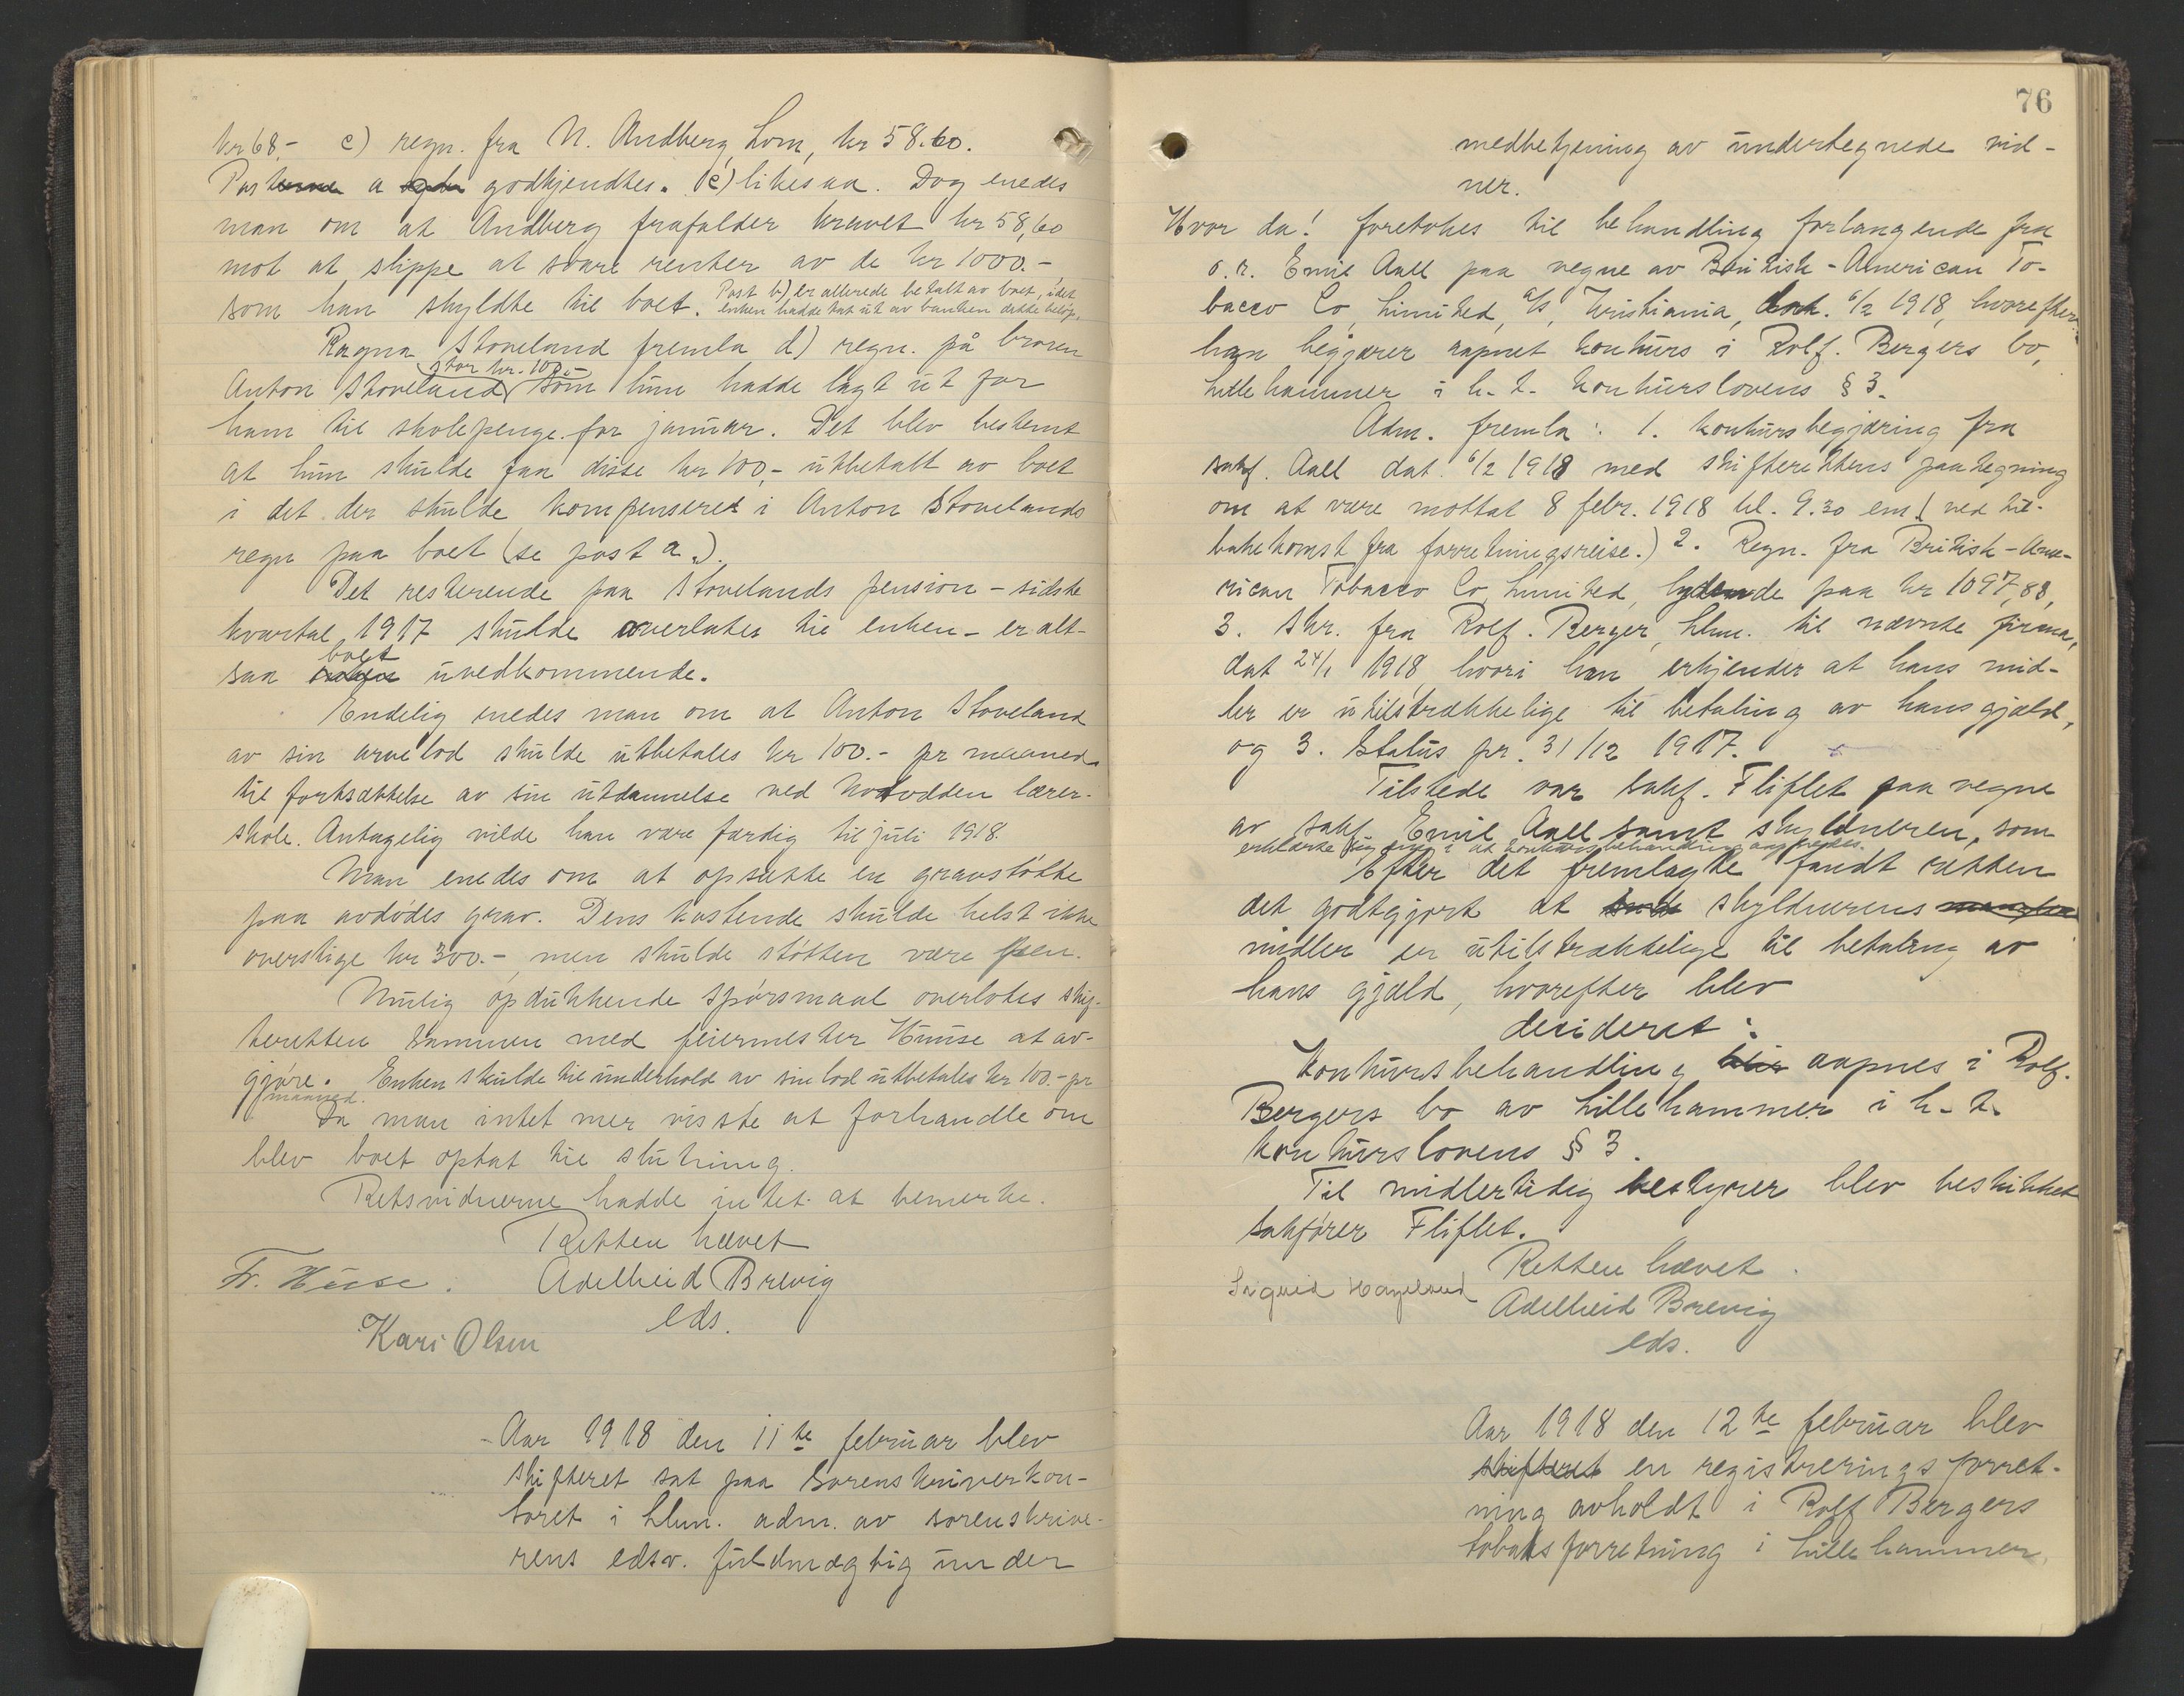 kr 68,- c) regn. fra N. Andberg, Lom, kr 58.60.
Posterne a og b godkjendtes. c) likesaa. Dog enedes
man om at Andberg frafalder kravet kr 58,60
mot at slippe at svare renter av de kr 1000.-,
som han skyldte til boet. Post b) er allerede betalt av boet, idet
enken hadde tat ut av banken dette beløp.
Ragna Stoveland fremla d) regn. på broren
stor kr. 100.-
Anton Stoveland som hun hadde lagt ut for
ham til skolepenge for januar. Det blev bestemt
at hun skulde faa disse kr 100,- utbetalt av boet
i det der skulde kompenseres i Anton Stovelands
regn paa boet (se post a.).
Det resterende paa Stovelands pension - sidste
kvartal 1917 skulde overlates til enken - er alt-
boet
saa uvedkommende.
Endelig enedes man om at Anton Stoveland
av sin arvelod skulde utbetales kr 100.- pr maaned
til fortsættelse av sin utdannelse ved Notodden lærer-
skole. Antagelig vilde han være færdig til juli 1918.
Man enedes om at opsætte en gravstøtte
paa avdødes grav. Dens kostende skulde helst ikke
overstige kr 300.-, men skulde støtten være pen.
Mulig opdukkende spørsmaal overlotes skif-
teretten sammen med feiermester Huuse at av-
gjøre. Enken skulde til underhold av sin lod utbetales kr 100.- pr
maaned.
Da man intet mer visste at forhandle om
blev boet optat til slutning.
Retsvidnerne hadde intet at bemerke.
Retten hævet
Fr. Huse. Adelheid Brevig
eds.
Kari Olsen
Aar 1918 den 11te februar blev
skifteret sat paa Sorenskriverkon-
toret i Lhm. adm. av sorenskrive-
rens edsv. fuldmægtig under
76
medbetjening av undertegnede vid-
ner.
Hvor da! foretokes til behandling forlangende fra
o.r. Emil Aall paa vegne av British-American To-
bacco Co, Limited, A/S, Kristiania, dat. 6/2 1918, hvorefter
han begjærer aapnet konkurs i Rolf. Bergers bo,
Lillehammer i h. t. konkurslovens § 3.
Adm. fremla: 1. konkursbegjæring fra
sakf. Aall dat. 6/2 1918 med skifterettens paategning
om at være mottat 8 febr. 1918 kl. 9.30 em. (ved til-
bakekomst fra forretningsreise.) 2. Regn. fra British-Ame-
rican Tobacco Co, Limited, lydende paa kr 1097,88,
3. Skr. fra Rolf. Berger, Lhm. til nævnte firma,
dat 24/1 1918, hvori han erkjender at hans mid-
ler er utilstrækkelige til betaling av hans gjæld,
og 3. Status pr. 31/12 1917.
Tilstede var sakf. Fliflet paa vegne
av sakf. Emil Aall samt skyldneren, som
erklærte sig enig i at konkursbehandling aapnedes.
Efter det fremlagte fandt retten
det godtgjort at skyldnerens
midler er utilstrækkelige til betaling av
hans gjæld, hvorefter blev
decideret:
Konkursbehandling blir aapnes i Rolf.
Bergers bo av Lillehammer i h. t.
konkurslovens § 3.
Til midlertidig bestyrer blev beskikket
sakfører Fliflet.
Retten hævet.
Sigrid Hagelund Adelheid Brevig
eds.
Aar 1918 den 12te februar blev
skifteret en registreringsforret-
ning avholdt i Rolf Bergers
tobaksforretning i Lillehammer,